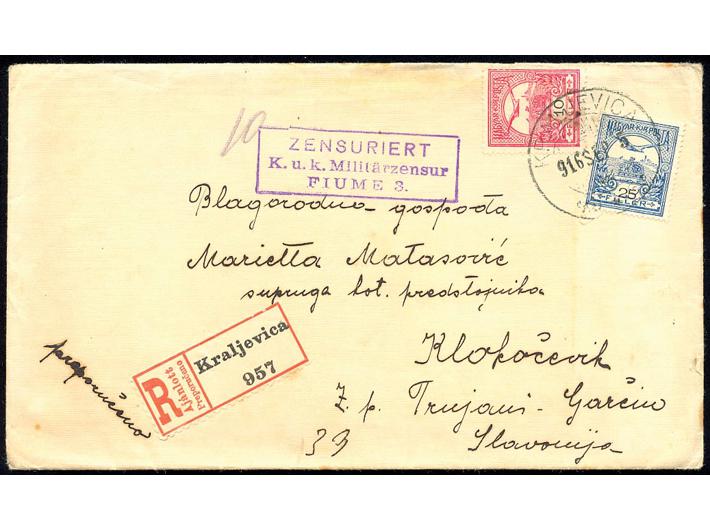 10
MAGYAR KIR. POSTA
10
KRALJEVICA
916 SEP 5
MAGYAR KIR. POSTA
25
FILLÉR
ZENSURIERT
K. u. k. Militärzensur
FIUME 3.
Blagorodna gospođa
Marietta Matasović
supruga kot. predstojnika
Klokočevik
Z. p. Trnjani - Garčin
39
Slavonija
preporučeno
R
Ajánlott
Preporučeno
Kraljevica
957